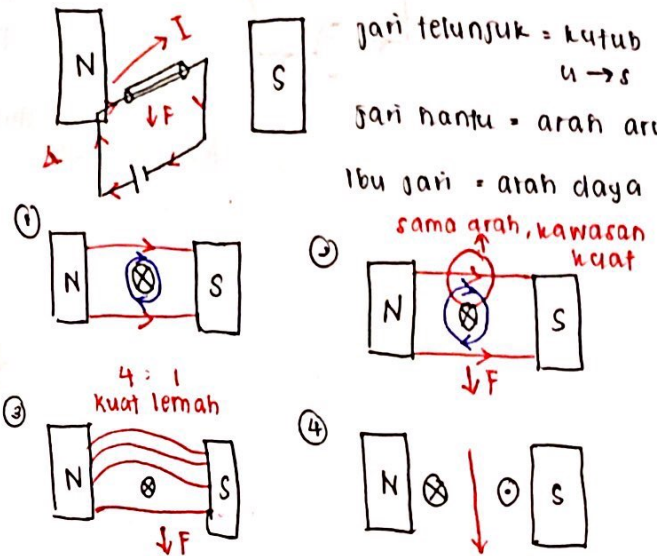 N
I
S
F
jari telunjuk = kutub
u → s
jari hantu = arah aru
Ibu jari = arah daya
①
N
S
②
sama arah, kawasan
kuat
N
S
F
③
4 : 1
kuat lemah
N
S
F
④
N
S